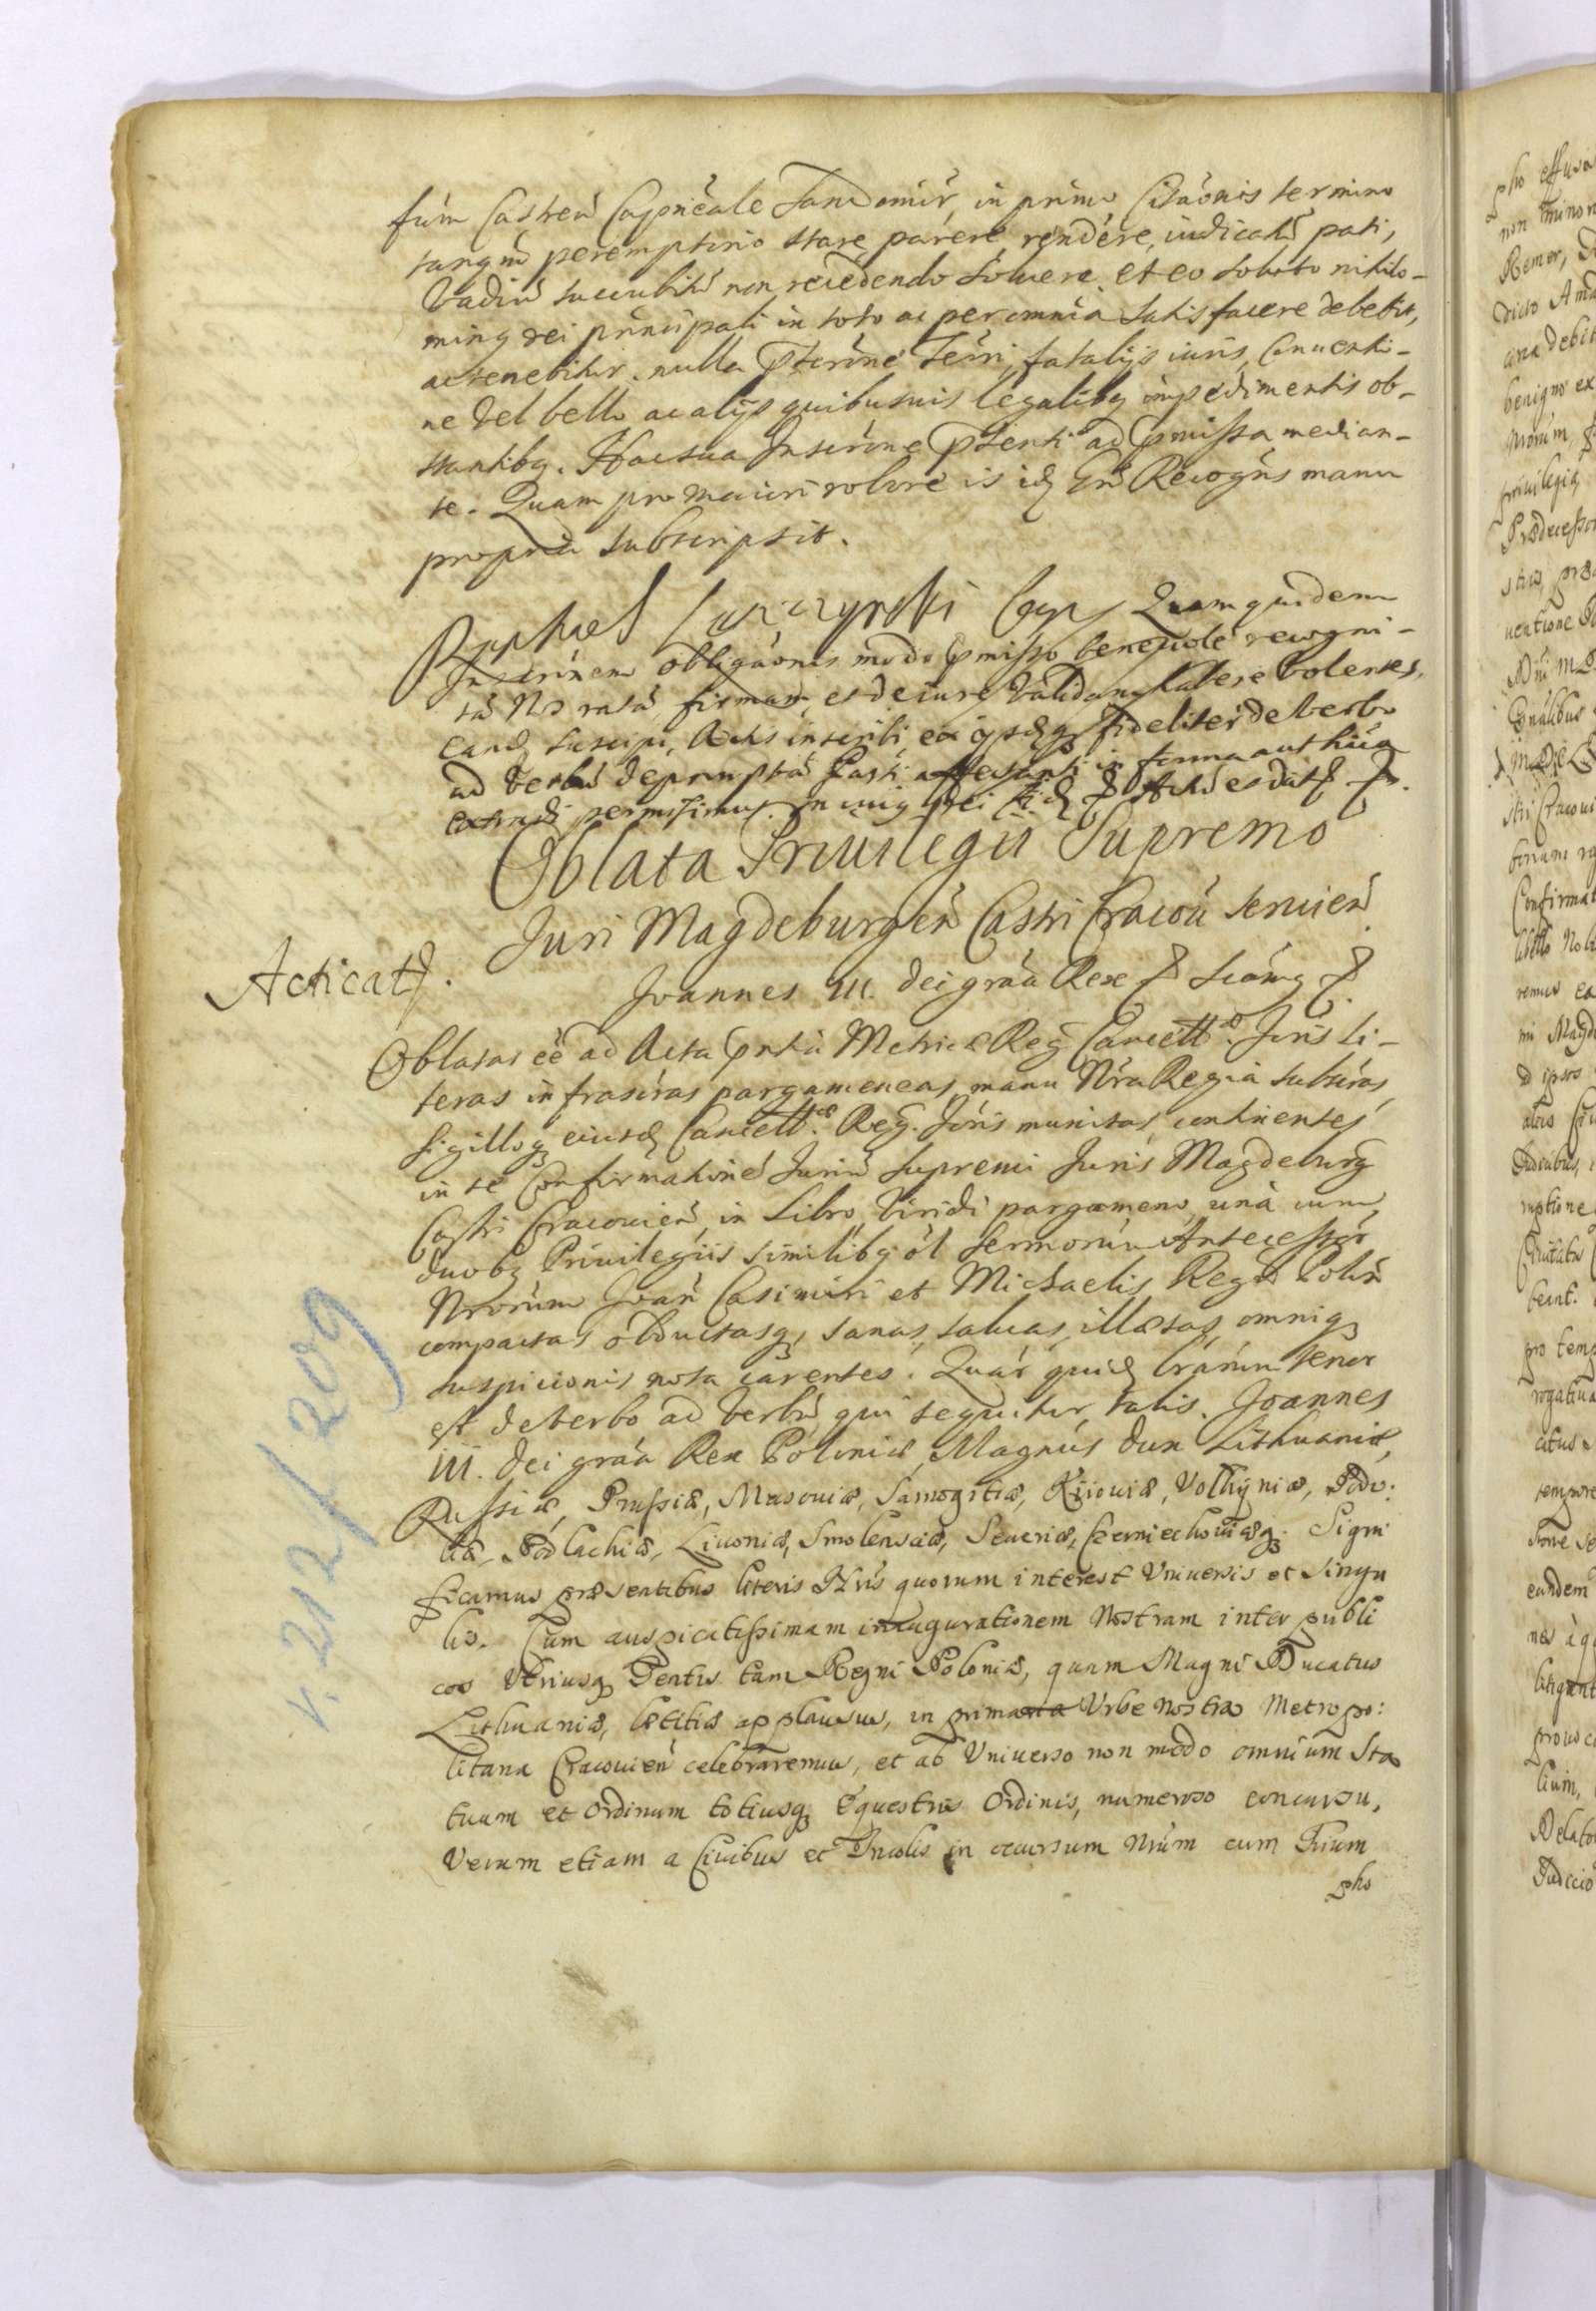 sum Castreń Capnéale Sandomir, in primo Citaõnis termino
tanq̃m peremptorio stare, parere, rńdere, iudicatũ pati,
vadiũ succubitũ non recedendo soluere, et eo soluto nihilo-
minq rei principali in toto ac per omnia satisfacere debebit,
ac tenebitur, nulla
ne vel bello ac alijs quibusuis legalibq impedimentis ob-
stantibq. Hac sua Inscrõne p̃senti ad p̃missa median-
te. Quam pro maiori robore is idẽ Gñs Recogñs manu
propria subscripsit.
Raphael Quamquidem
Inscrip̃nem obligaõnis modo p̃misso beneuole recogni-
tã Nos ratã, firmam, et de iure validamq habere volentes,
eandẽ suscipi, Actis inscribi, ex ijsdẽq fideliter de verbo
ad verbũ depromptã Parti affectanti in forma authẽca
extradi permisimus. In cuiq rei
Oblata Priuilegii Supremo
Juri Magdeburgeñ Castri Cracou seruień
Acticat.
Joannes III. Dei grãa Rex
Oblatas eẽ ad Acta p̃ntia Metricæ Regñ Cancell.æ Juris li-
teras infrascr̃as pargameneas, manu Nr̃a Regia subscr̃as,
sigilloq eiusd Cancell.æ Regñ. munitas, continentes
in se Confirmationẽ Juriũ Supremi Juris Magdeburg
Castri Cracouień, in Libro viridi pargameno, unà cum
duobq Priuilegiis similibq ol Sermorum Antecessor
Nrorum Joań Casimiri et Michaelis Regũ Poloń
compactas obductasq, sanas, saluas, illæsas, omniq
suspicionis nota carentes. Quar quidẽ lr̃arum tenor
est de verbo ad verbũ, qui sequitur, talis. Joannes
III. Dei grãa Rex Poloniæ, Magnus Dux Lithuaniæ,
Russiæ, Prussiæ, Masouiæ, Samogitiæ, Kijouiæ, Volhyniæ, Podo:
liæ, Podlachiæ, Liuoniæ, Smolensciæ, Seueriæ, Czerniechouiæq. Signi
ficamus præsentibus literis Nr̃is quorum interest Vniuersis et Singu
lis. Cum auspicatissimam inaugurationem Nostram inter publi
cos Vtriusq Gentis tam Regni Poloniæ, quam Magni Ducatus
Lithuaniæ, lætitiæ applausus, in primaria Vrbe nostra Metropo:
litana Cracouień celebraremus, et ab Vniuerso non modo omnium Sta
tuum et Ordinum totiusq Equestris Ordinis, numeroso concursu,
Verum etiam a Ciuibus et Incolis in occursum Nr̃um cum Trium
pho
r. 212/209